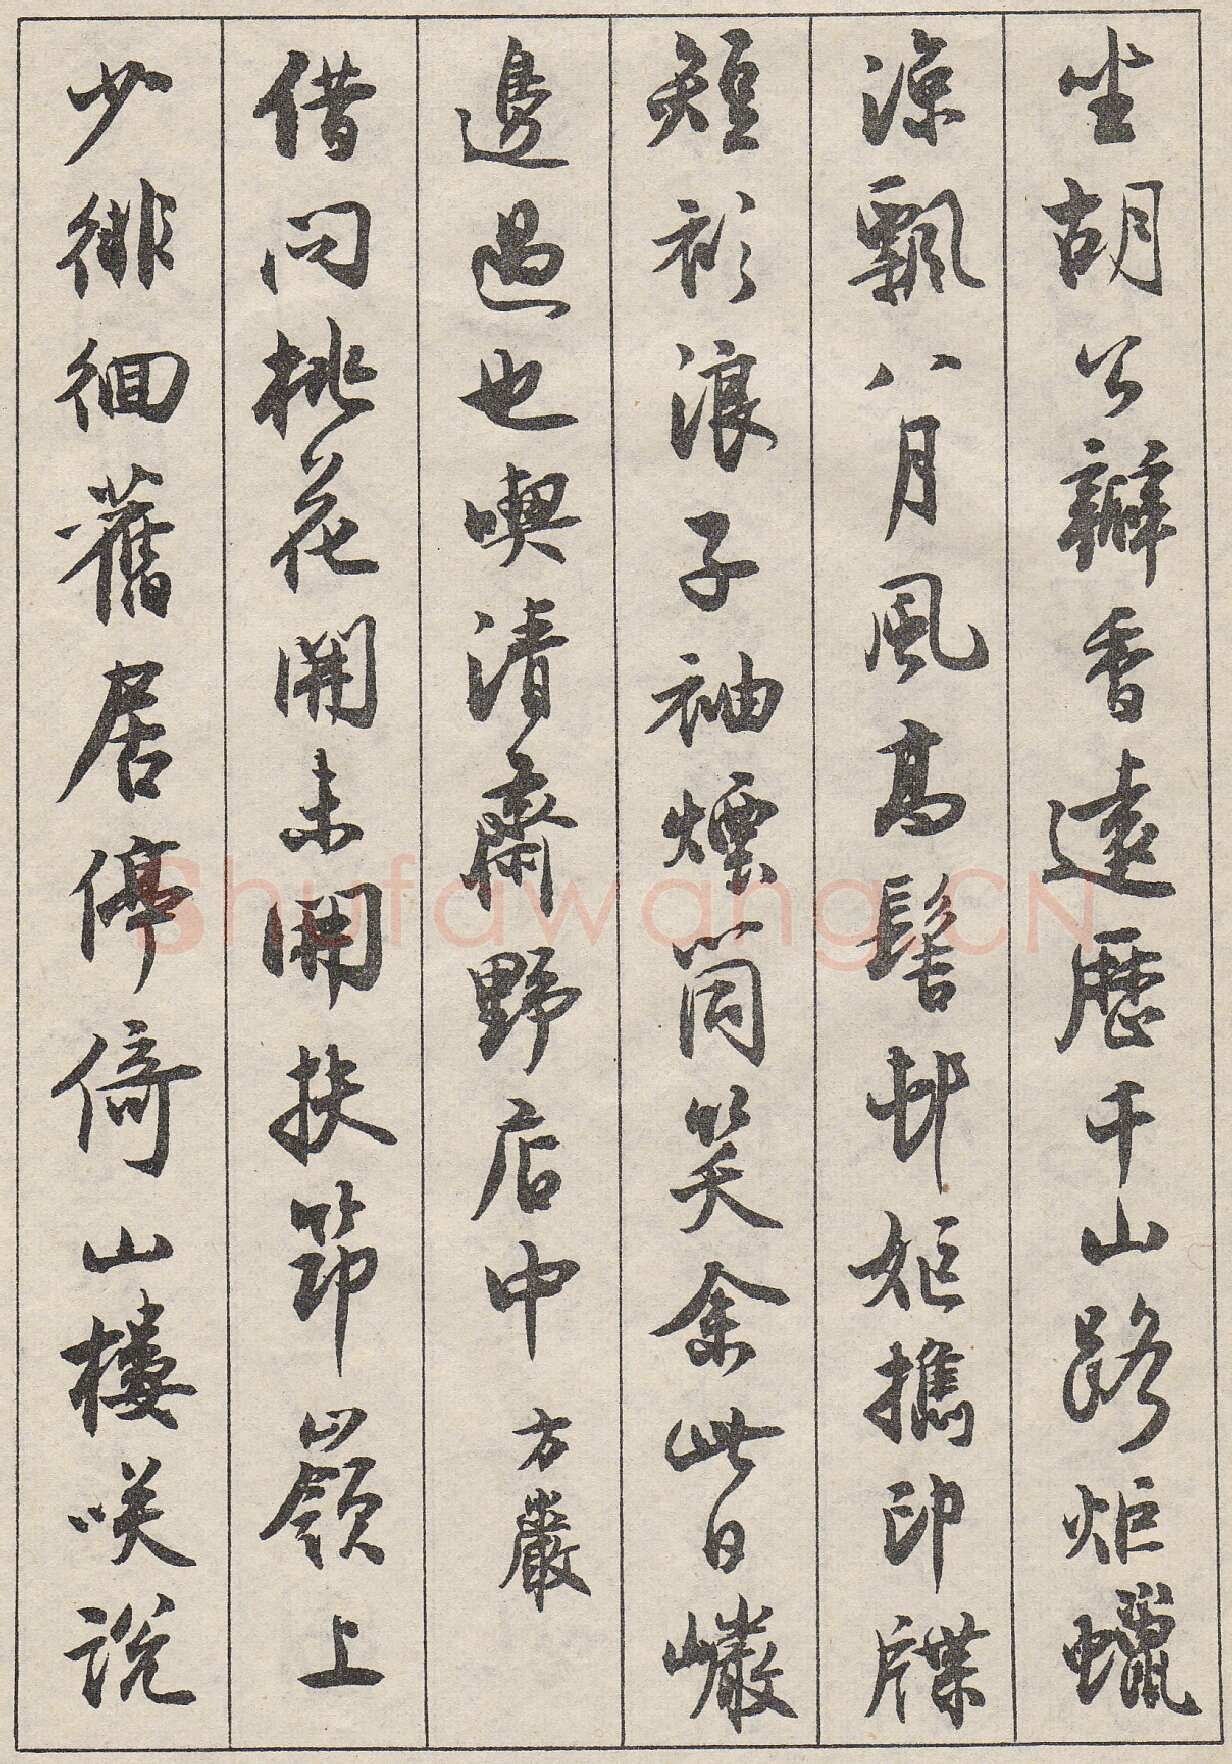 坐胡公瓣香遠歷千山路炬蠟
涼飄八月風高髻邨姬攜印牒
短衫浪子袖煙筒笑余此日巖
邊過也喫清齋野店中 方巖
借問桃花開未開扶筇嶺上
少徘徊舊居停倚山樓咲說
ShufawangCN